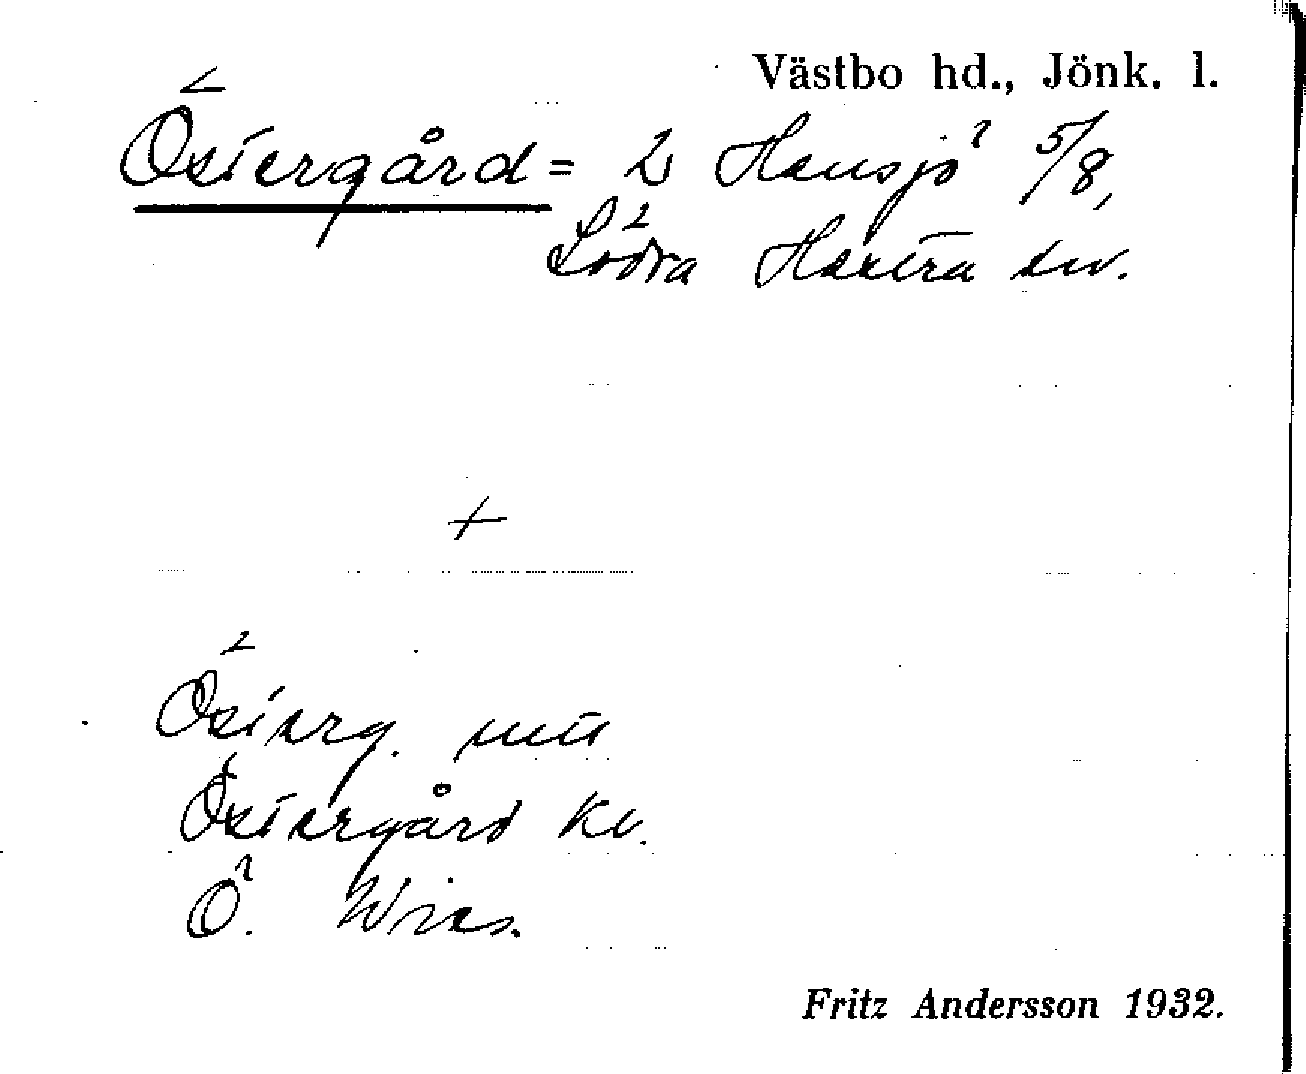 Västbo hd., Jönk. l.
Östergård = 2 Hensjö 5/8,
Södra Hestra sn.
+
Österg. utt
Östergård kv.
Ö. Wies.
Fritz Andersson 1932.